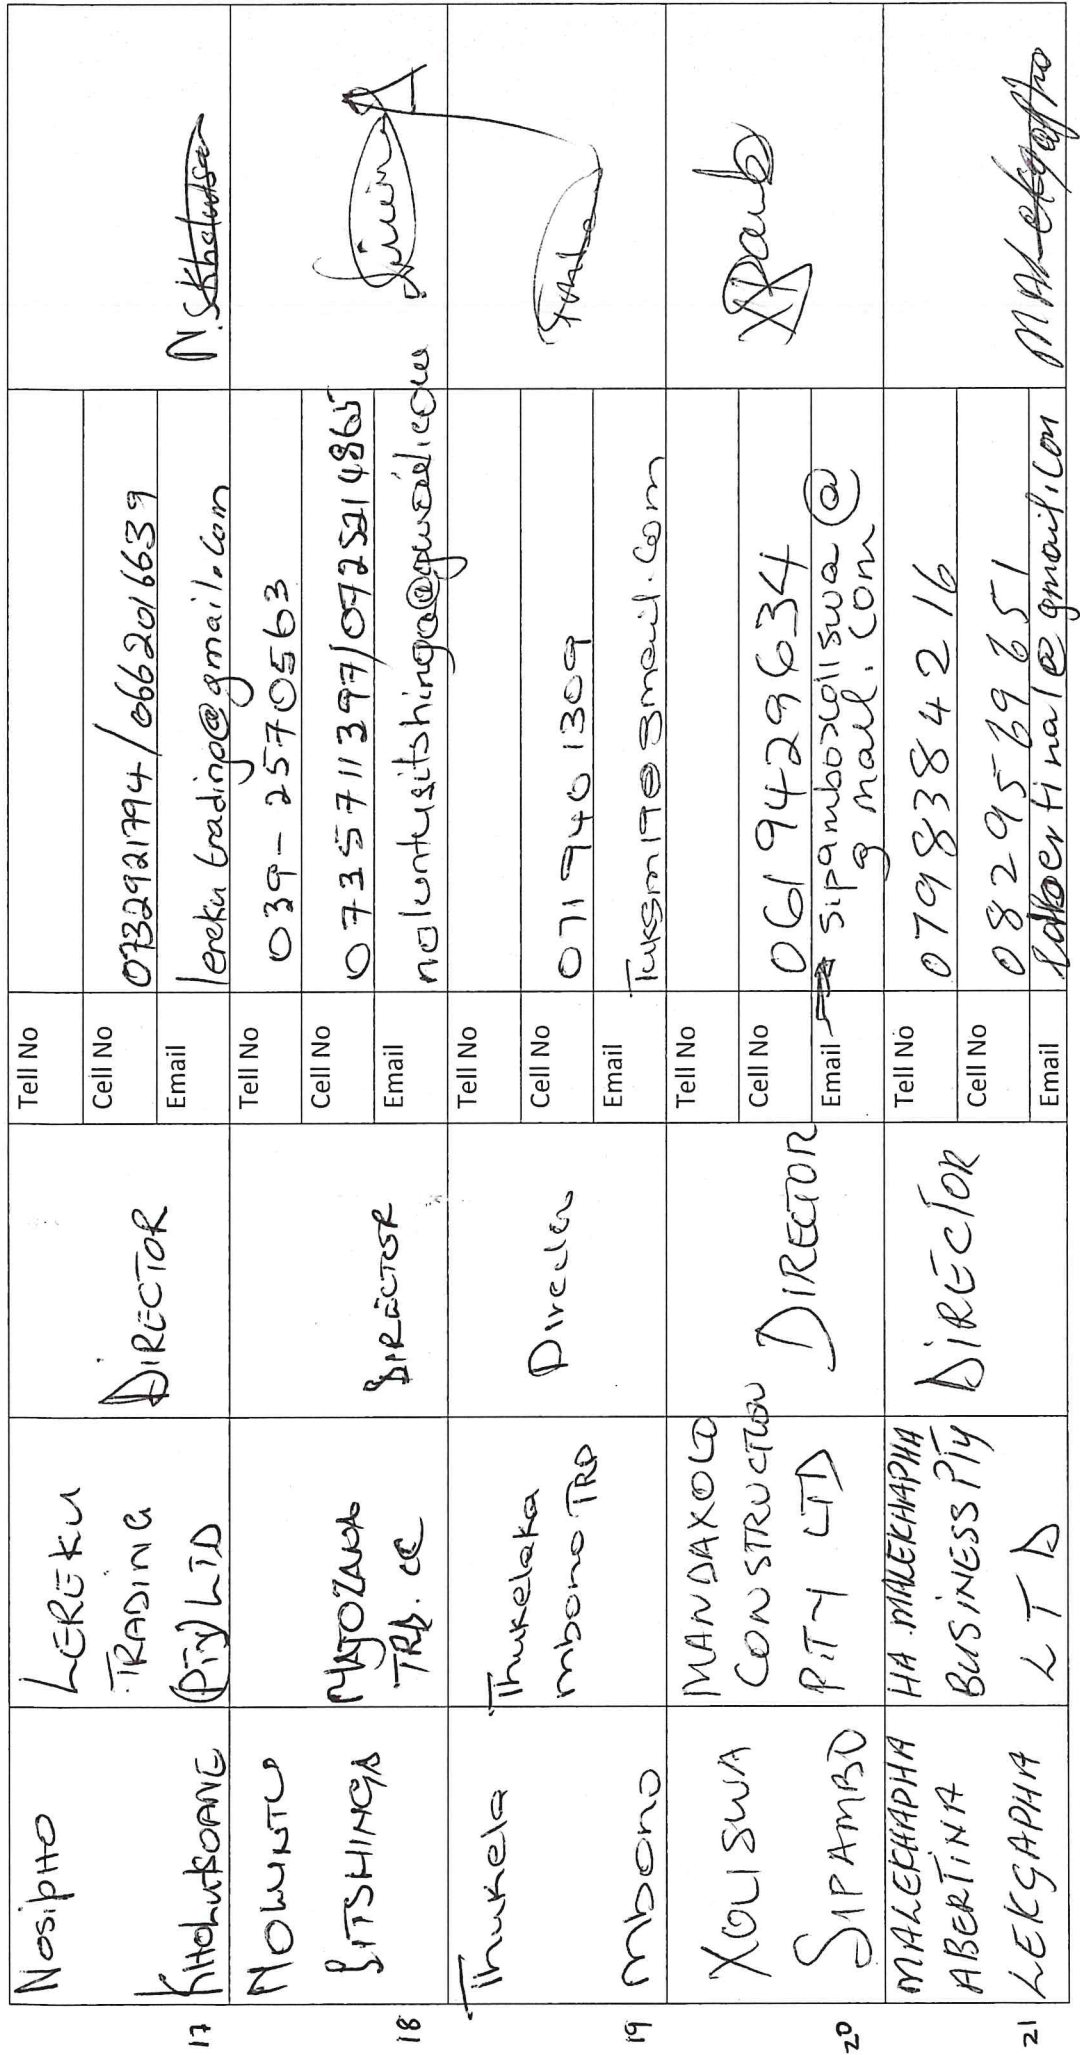 17
Nosipho
KHOLUTSOANE
LEREKU
TRADING
(PTY) LTD
DIRECTOR
Tell No
Cell No
0732921794/0662016639
Email
lereku trading@gmail.com
18
NOLUNTU
SITSHINGA
MAJOZANA
TRD. CC
DIRECTOR
Tell No
039-2570563
Cell No
0735711397/0725214865
Email
noluntusitshinga@gmail.com
19
Thukela
mbono
Thukelaka
mbono TRD
Director
Tell No
Cell No
0717940 1309
Email
20
XOLISWA
SIPAMBO
MANDAXOLO
CONSTRUCTION
PITY LTD
DIRECTOR
Tell No
Cell No
0619429634
Email
sipamboxoliswa@
gmail.com
21
MALEKHAPHA
ABERTINA
LEKGAPHA
HA.MALEKHAPHA
BUSINESS PTY
LTD
DIRECTOR
Tell No
0798384216
Cell No
0829569651
Email